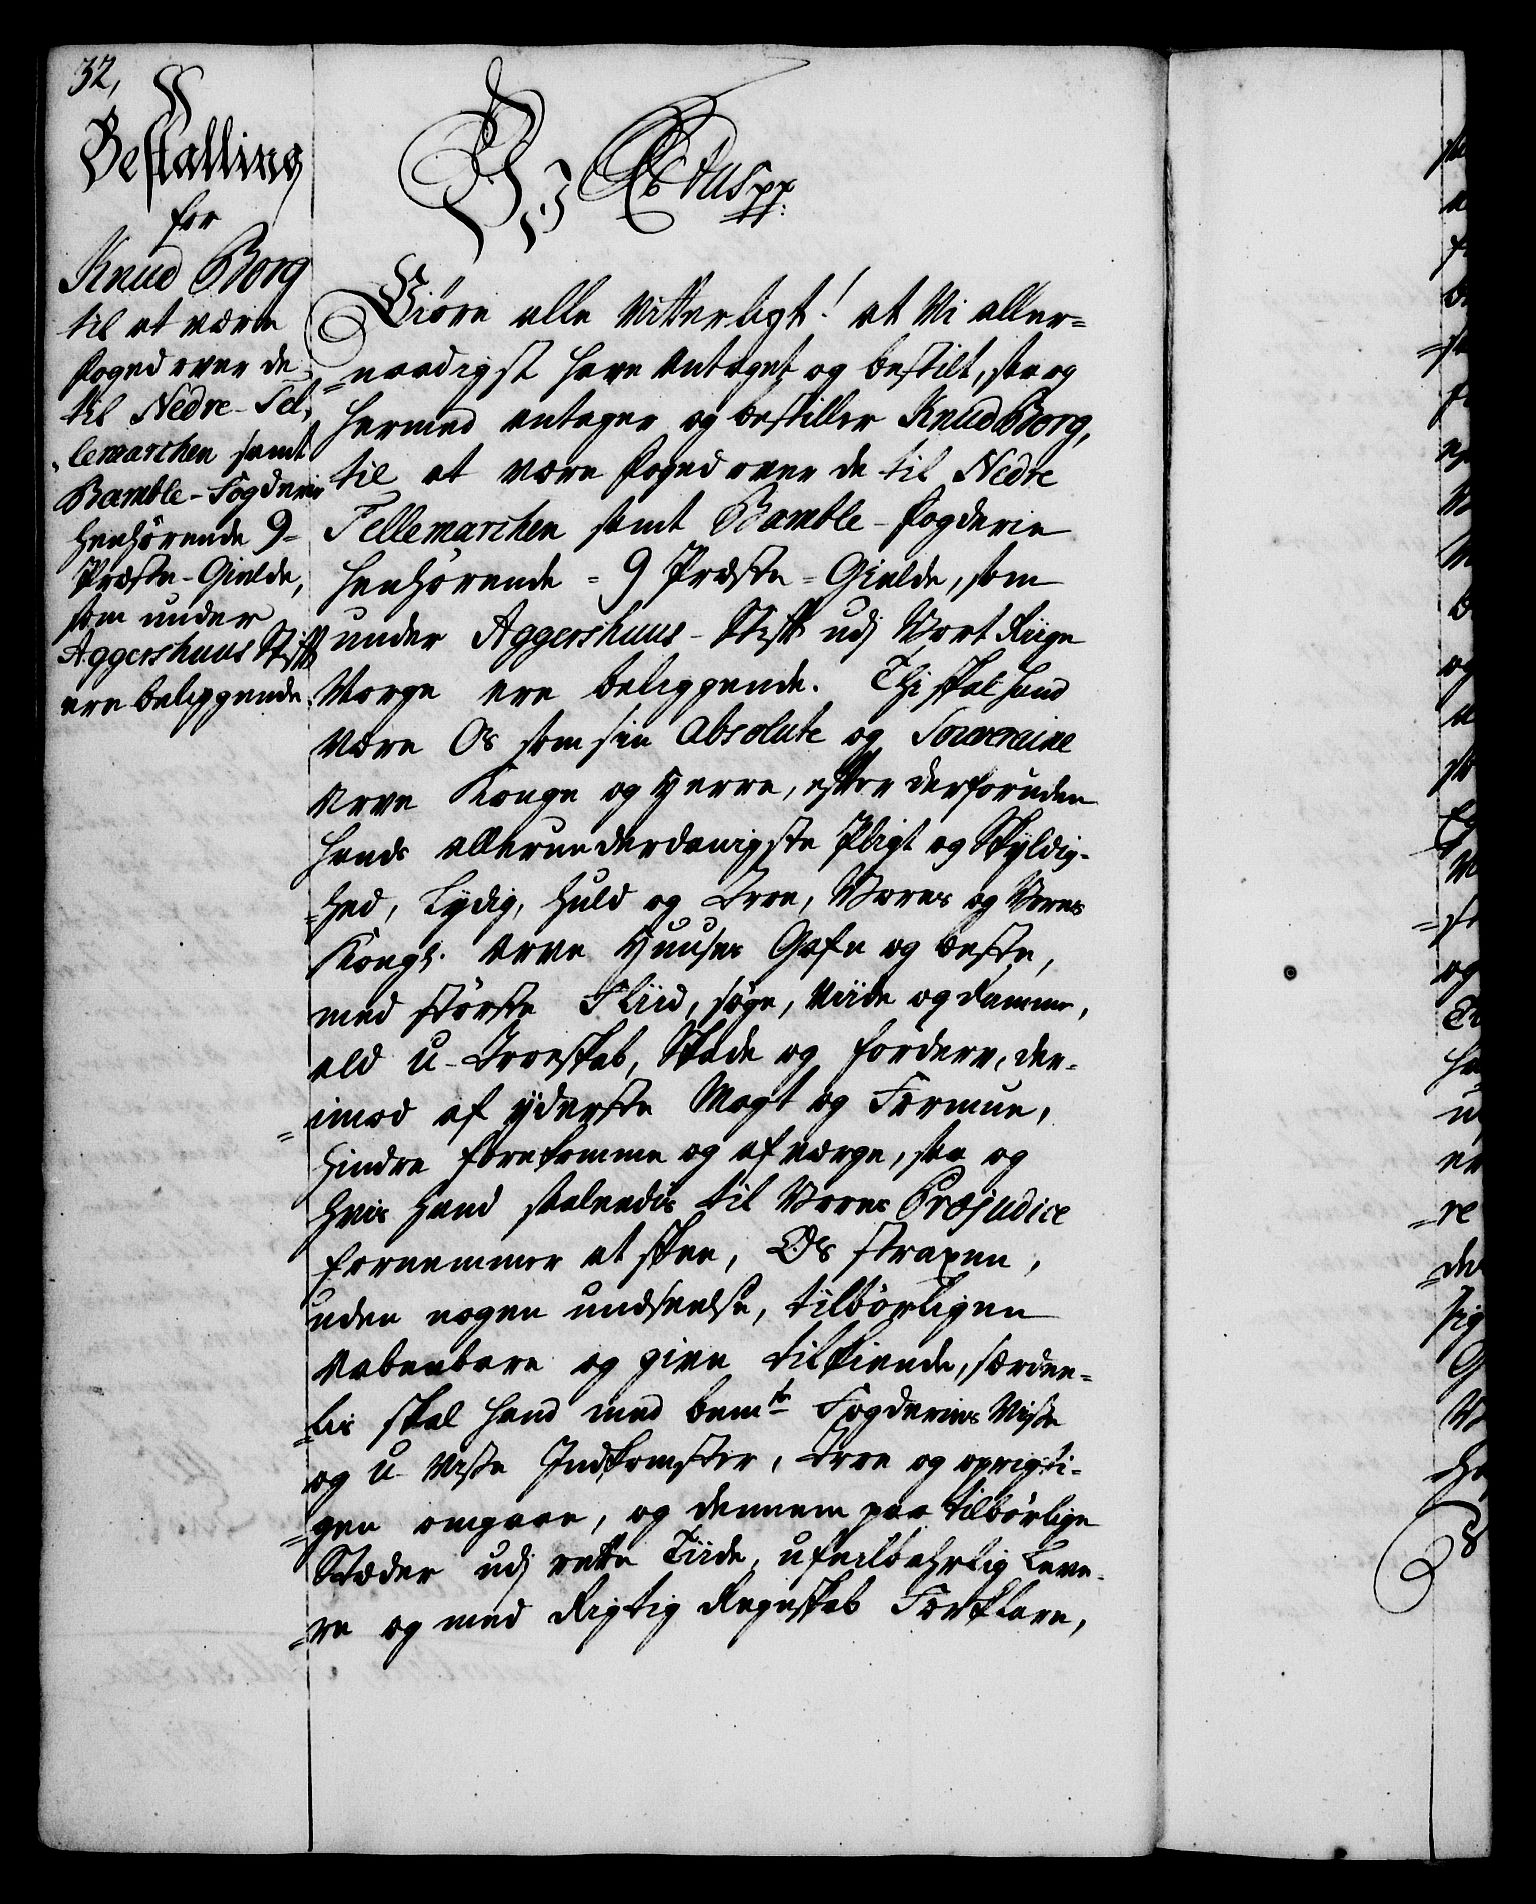 32,
Bestalling
for
Knud Borg
til at være
Foged over de
til Nedre-Tel-
lemarchen samt
Bamble-Fogderie
Henhørende 9-
Præste-Gielde,
som under
Aggershuus Stift
ere beliggende.
Vi Ctus pp:
Giøre alle vitterligt! at Vi aller-
naadigst have antaget og bestilt, saa og
hermed antager og bestiller Knud Borg,
til at være Foged over de til Nedre
Tellemarchen samt Bamble-Fogderie
henhørende 9 Præste-Gielde, som
under Aggershuus-Stift udj Vort Riige
Norge ere beliggende. Thi skal hand
være Os som sin absolute og Souveraine
Arve Konge og Herre, efter derforuden
hands allerunderdanigste Pligt og Skyldig-
hed, Lydig, huld og Troe, Vores og Vores
Kongl. Arve Huuses Gafn og beste,
med største Fliid, søge, viide og ramme,
ald U-Troeskab, Skade og Forderv, der-
imod af yderste Magt og Formue,
hindre forekomme og afværge, saa og
hvis hand saaledis til Vores Præjudice
fornemmer at skee, Os straxen,
uden nogen undseelse, tilbørligen
aabenbare og give tilkiende, særdee-
lis skal hand med bemte Fogderies Viste
og U-Viste Indkomster, troe og oprigti-
gen omgaae, og dennem paa tilbørlige
Stæder udj rette Tiide, ufeilbahrlig Leve-
re og med Rigtig Regnskab Forklare,